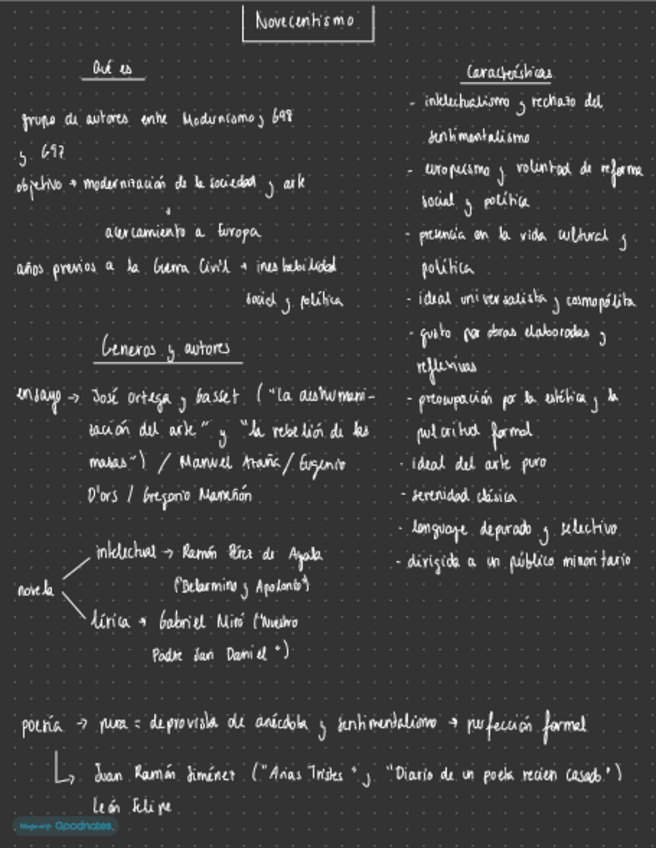 Novecentismo
Qué es
grupo de autores entre Modernismo y G98
y G27
objetivo → modernización de la sociedad y arte
↓
acercamiento a Europa
años previos a la Guerra Civil → inestabilidad
social y política
Géneros y autores
ensayo → José Ortega y Gasset ("La deshumani-
zación del arte" y "la rebelión de las
masas") / Manuel Azaña / Eugenio
D'ors / Gregorio Marañón
novela
intelectual → Ramón Pérez de Ayala
("Belarmino y Apolonio")
lírica → Gabriel Miró ("Nuestro
Padre San Daniel")
Características
- intelectualismo y rechazo del
sentimentalismo
- europeísmo y voluntad de reforma
social y política
- presencia en la vida cultural y
política
- ideal universalista y cosmopólita
- gusto por obras elaboradas y
reflexivas
- preocupación por la estética y la
pulcritud formal
- ideal del arte puro
- serenidad clásica
- lenguaje depurado y selectivo
- dirigida a un público minoritario
poesía → pura = deprovista de anécdota y sentimentalismo → perfección formal
Juan Ramón Jiménez ("Arias Tristes" y "Diario de un poeta recien casado")
León Felipe
Made with Goodnotes